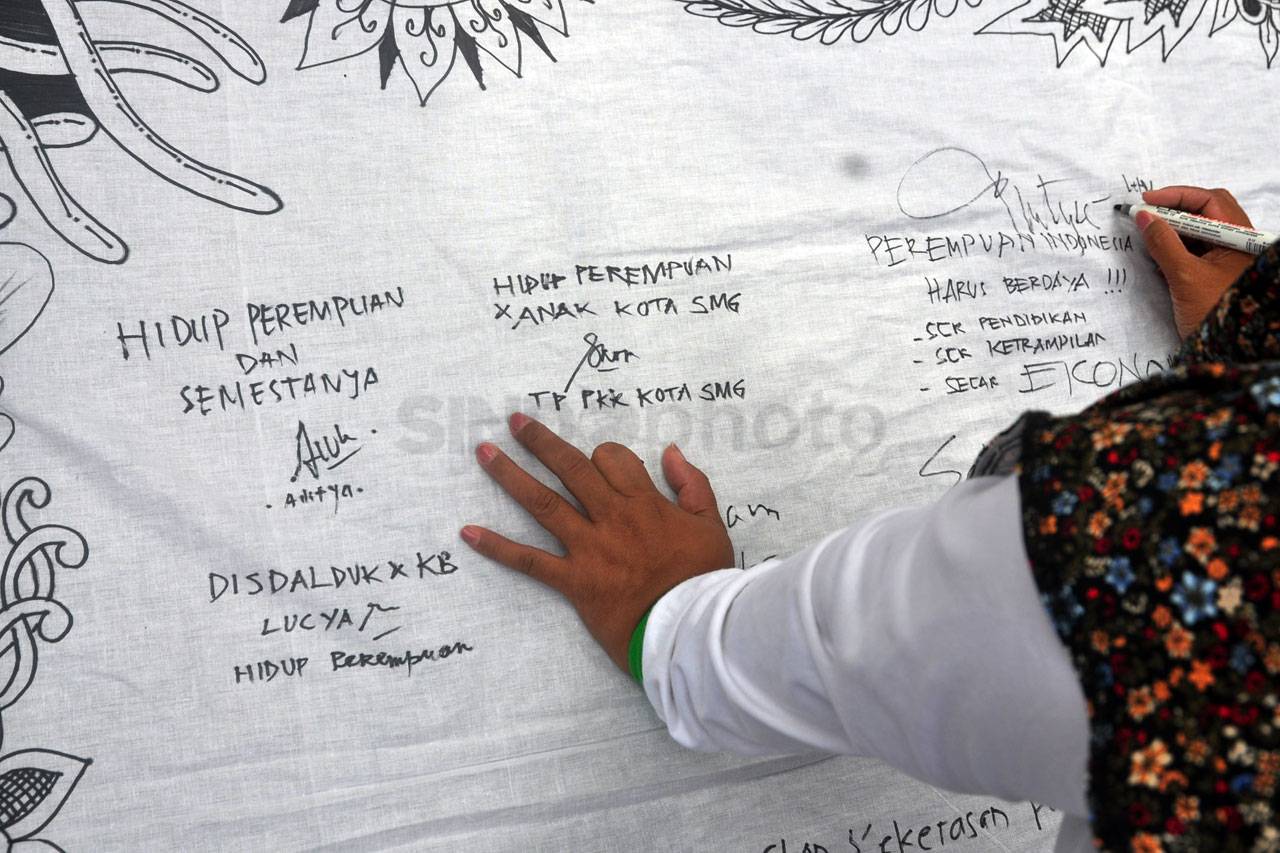 HIDUP PEREMPUAN
DAN
SEMESTANYA
Aditya
DISDALDUK X KB
LUCYA
HIDUP Perempuan
HIDUP PEREMPUAN
X ANAK KOTA SMG
TP PKK KOTA SMG
PEREMPUAN INDONESIA
HARUS BERDAYA !!!
- SCR PENDIDIKAN
- SCR KETRAMPILAN
- SECAR EKONO
am
kekerasan